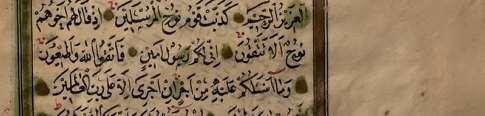 الْعَزِيزُ الرَّحِيمُ كَذَّبَتْ قَوْمُ نُوحٍ الْمُرْسَلِينَ إِذْ قَالَ لَهُمْ أَخُوهُمْ
نُوحٌ أَلَا تَتَّقُونَ إِنِّي لَكُمْ رَسُولٌ أَمِينٌ فَاتَّقُوا اللَّهَ وَأَطِيعُونِ
وَمَا أَسْأَلُكُمْ عَلَيْهِ مِنْ أَجْرٍ إِنْ أَجْرِيَ إِلَّا عَلَى رَبِّ الْعَالَمِينَ